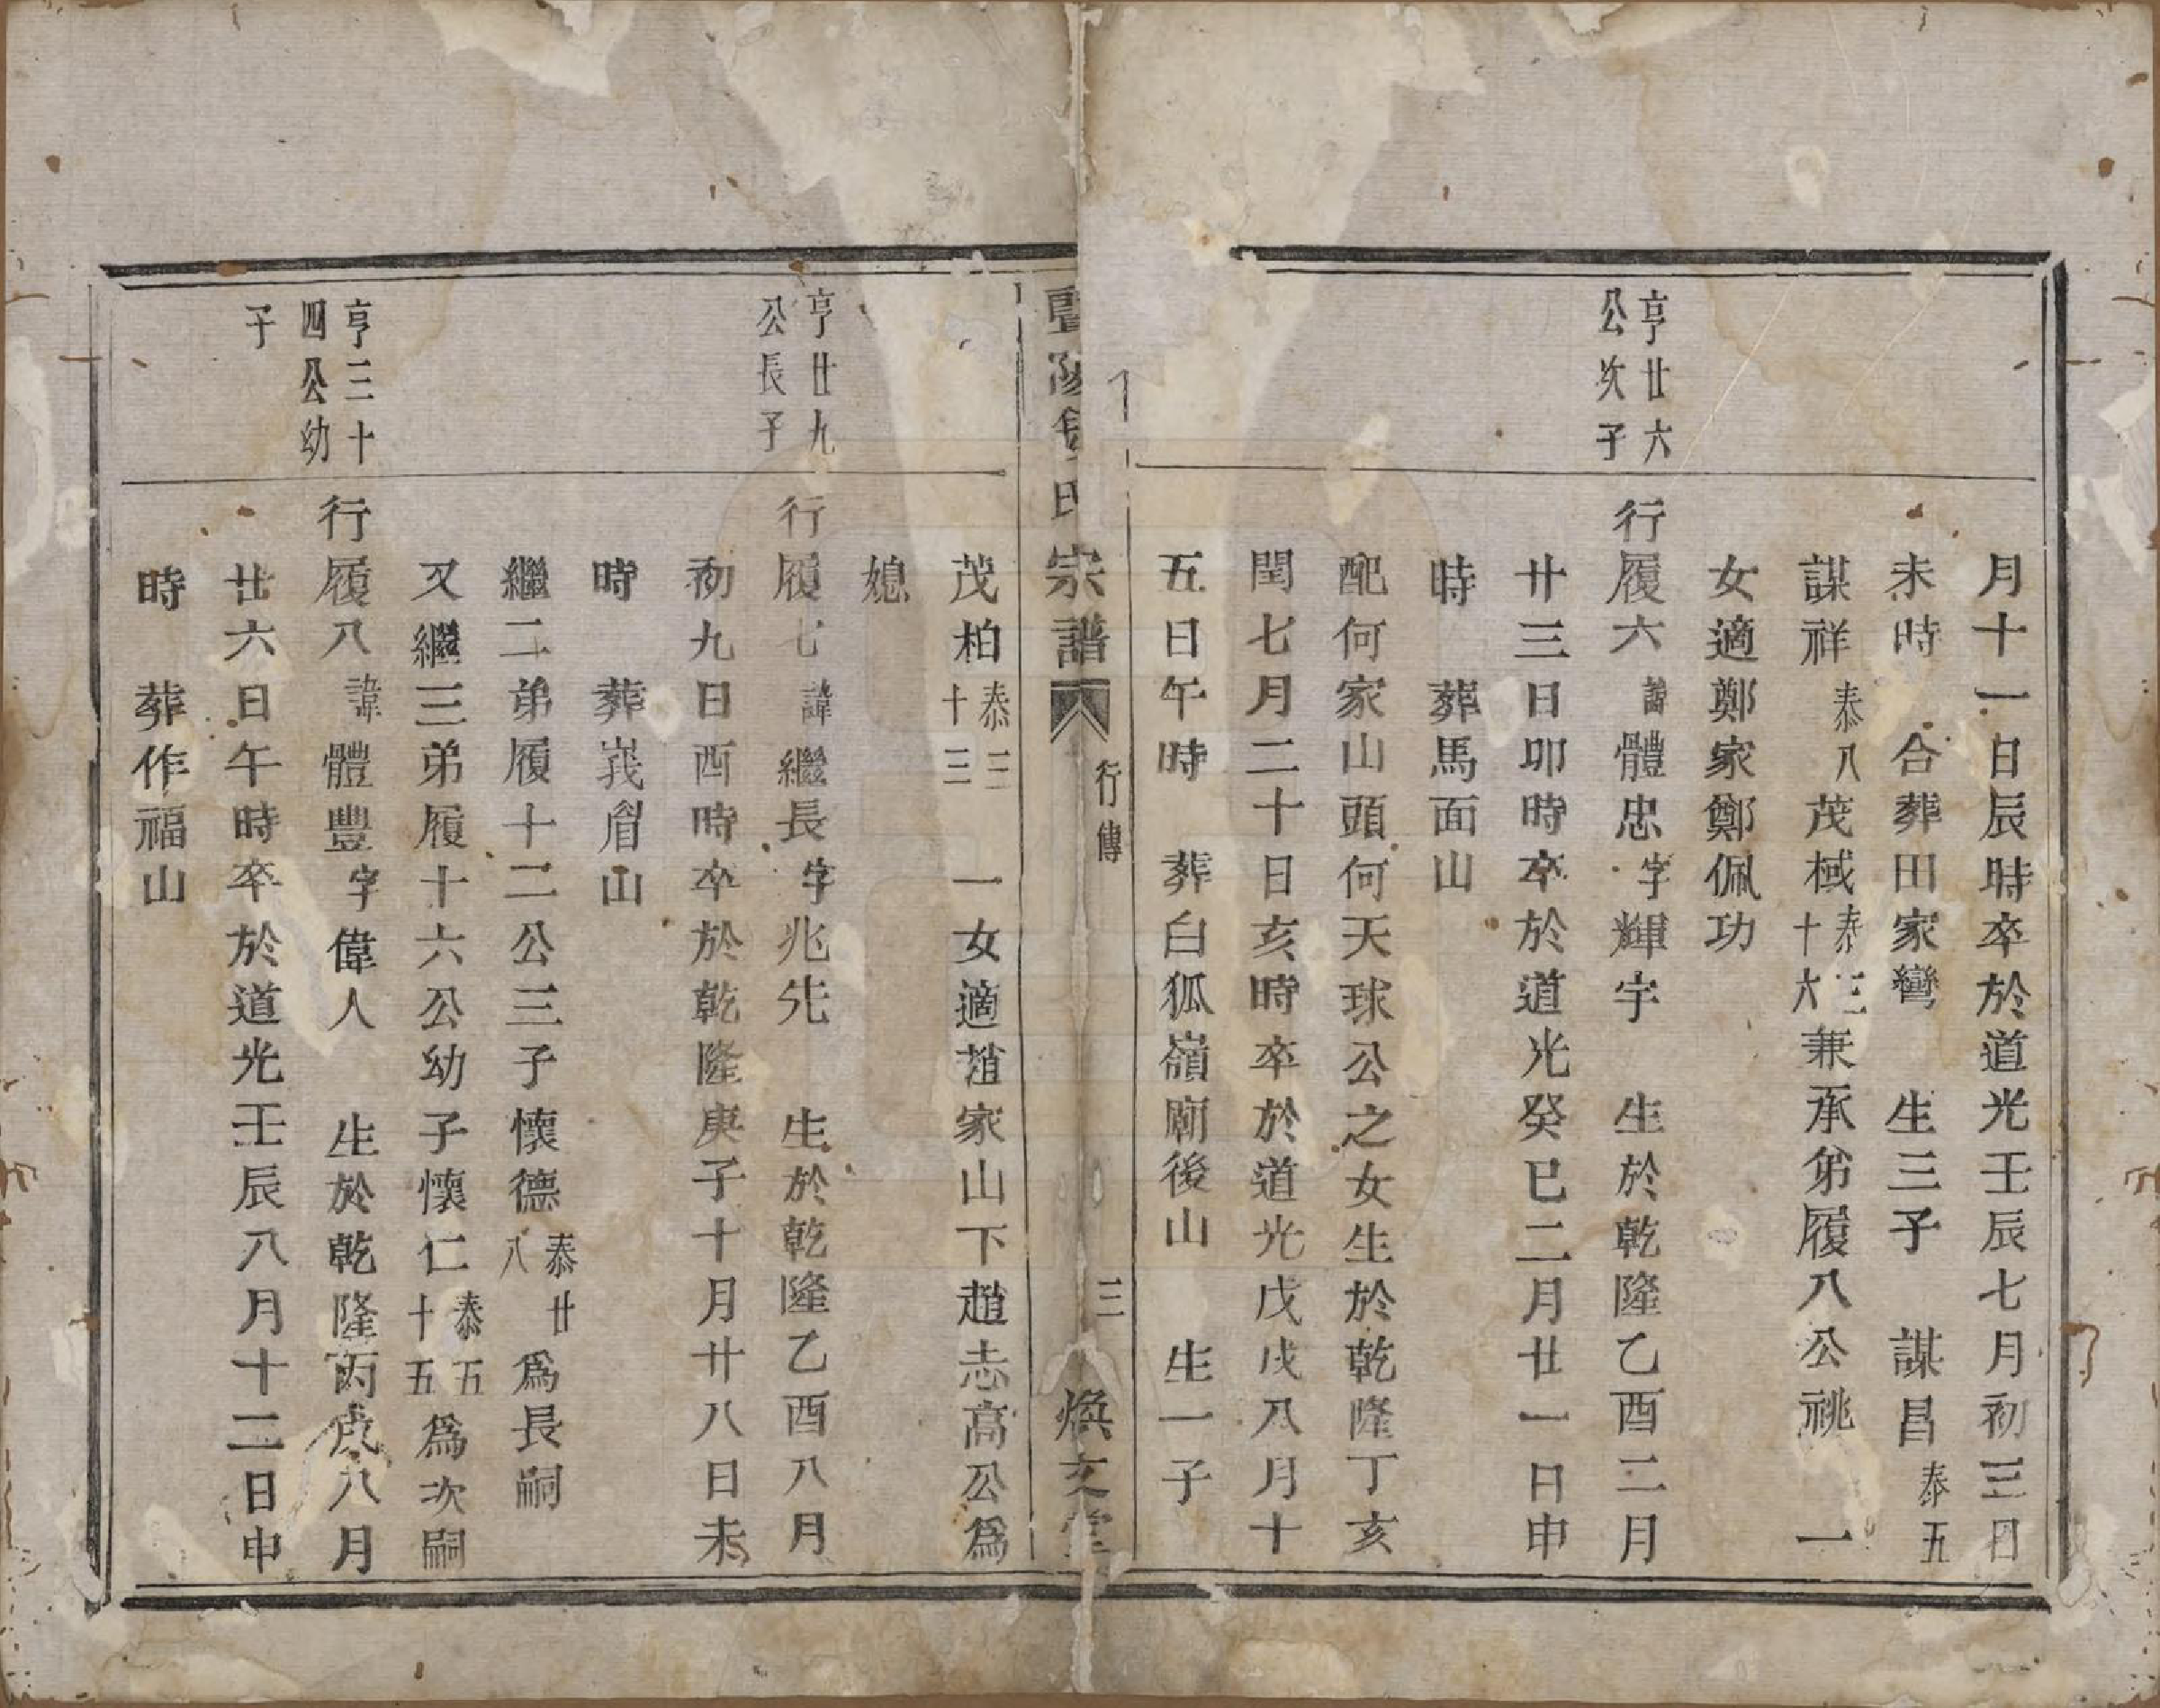 月十一日辰時卒於道光壬辰七月初三日
未時　合葬田家彎　生三子　謀昌泰五
謀祥泰八茂棫泰三十六兼承弟履八公祧　一
女適鄭家鄭佩功
亨廿六
公次子
行履六諱體忠字輝宇　生於乾隆乙酉二月
廿三日卯時卒於道光癸巳二月廿一日申
時　葬馬面山
配何家山頭何天球公之女生於乾隆丁亥
閏七月二十日亥時卒於道光戊戌八月十
五日午時　葬白狐嶺廟後山　生一子
暨陽　氏宗譜　行傳　三　煥文堂
茂柏泰三十三　一女適趙家山下趙志高公爲
媳
亨廿九
公長子
行履七諱繼長字兆先　生於乾隆乙酉八月
初九日酉時卒於乾隆庚子十月廿八日未
時　葬峩眉山
繼二弟履十二公三子懷德泰廿八爲長嗣
又繼三弟履十六公幼子懷仁泰五十五爲次嗣
亨三十
四公幼
子
行履八諱體豐字偉人　生於乾隆丙戌八月
廿六日午時卒於道光壬辰八月十二日申
時　葬作福山